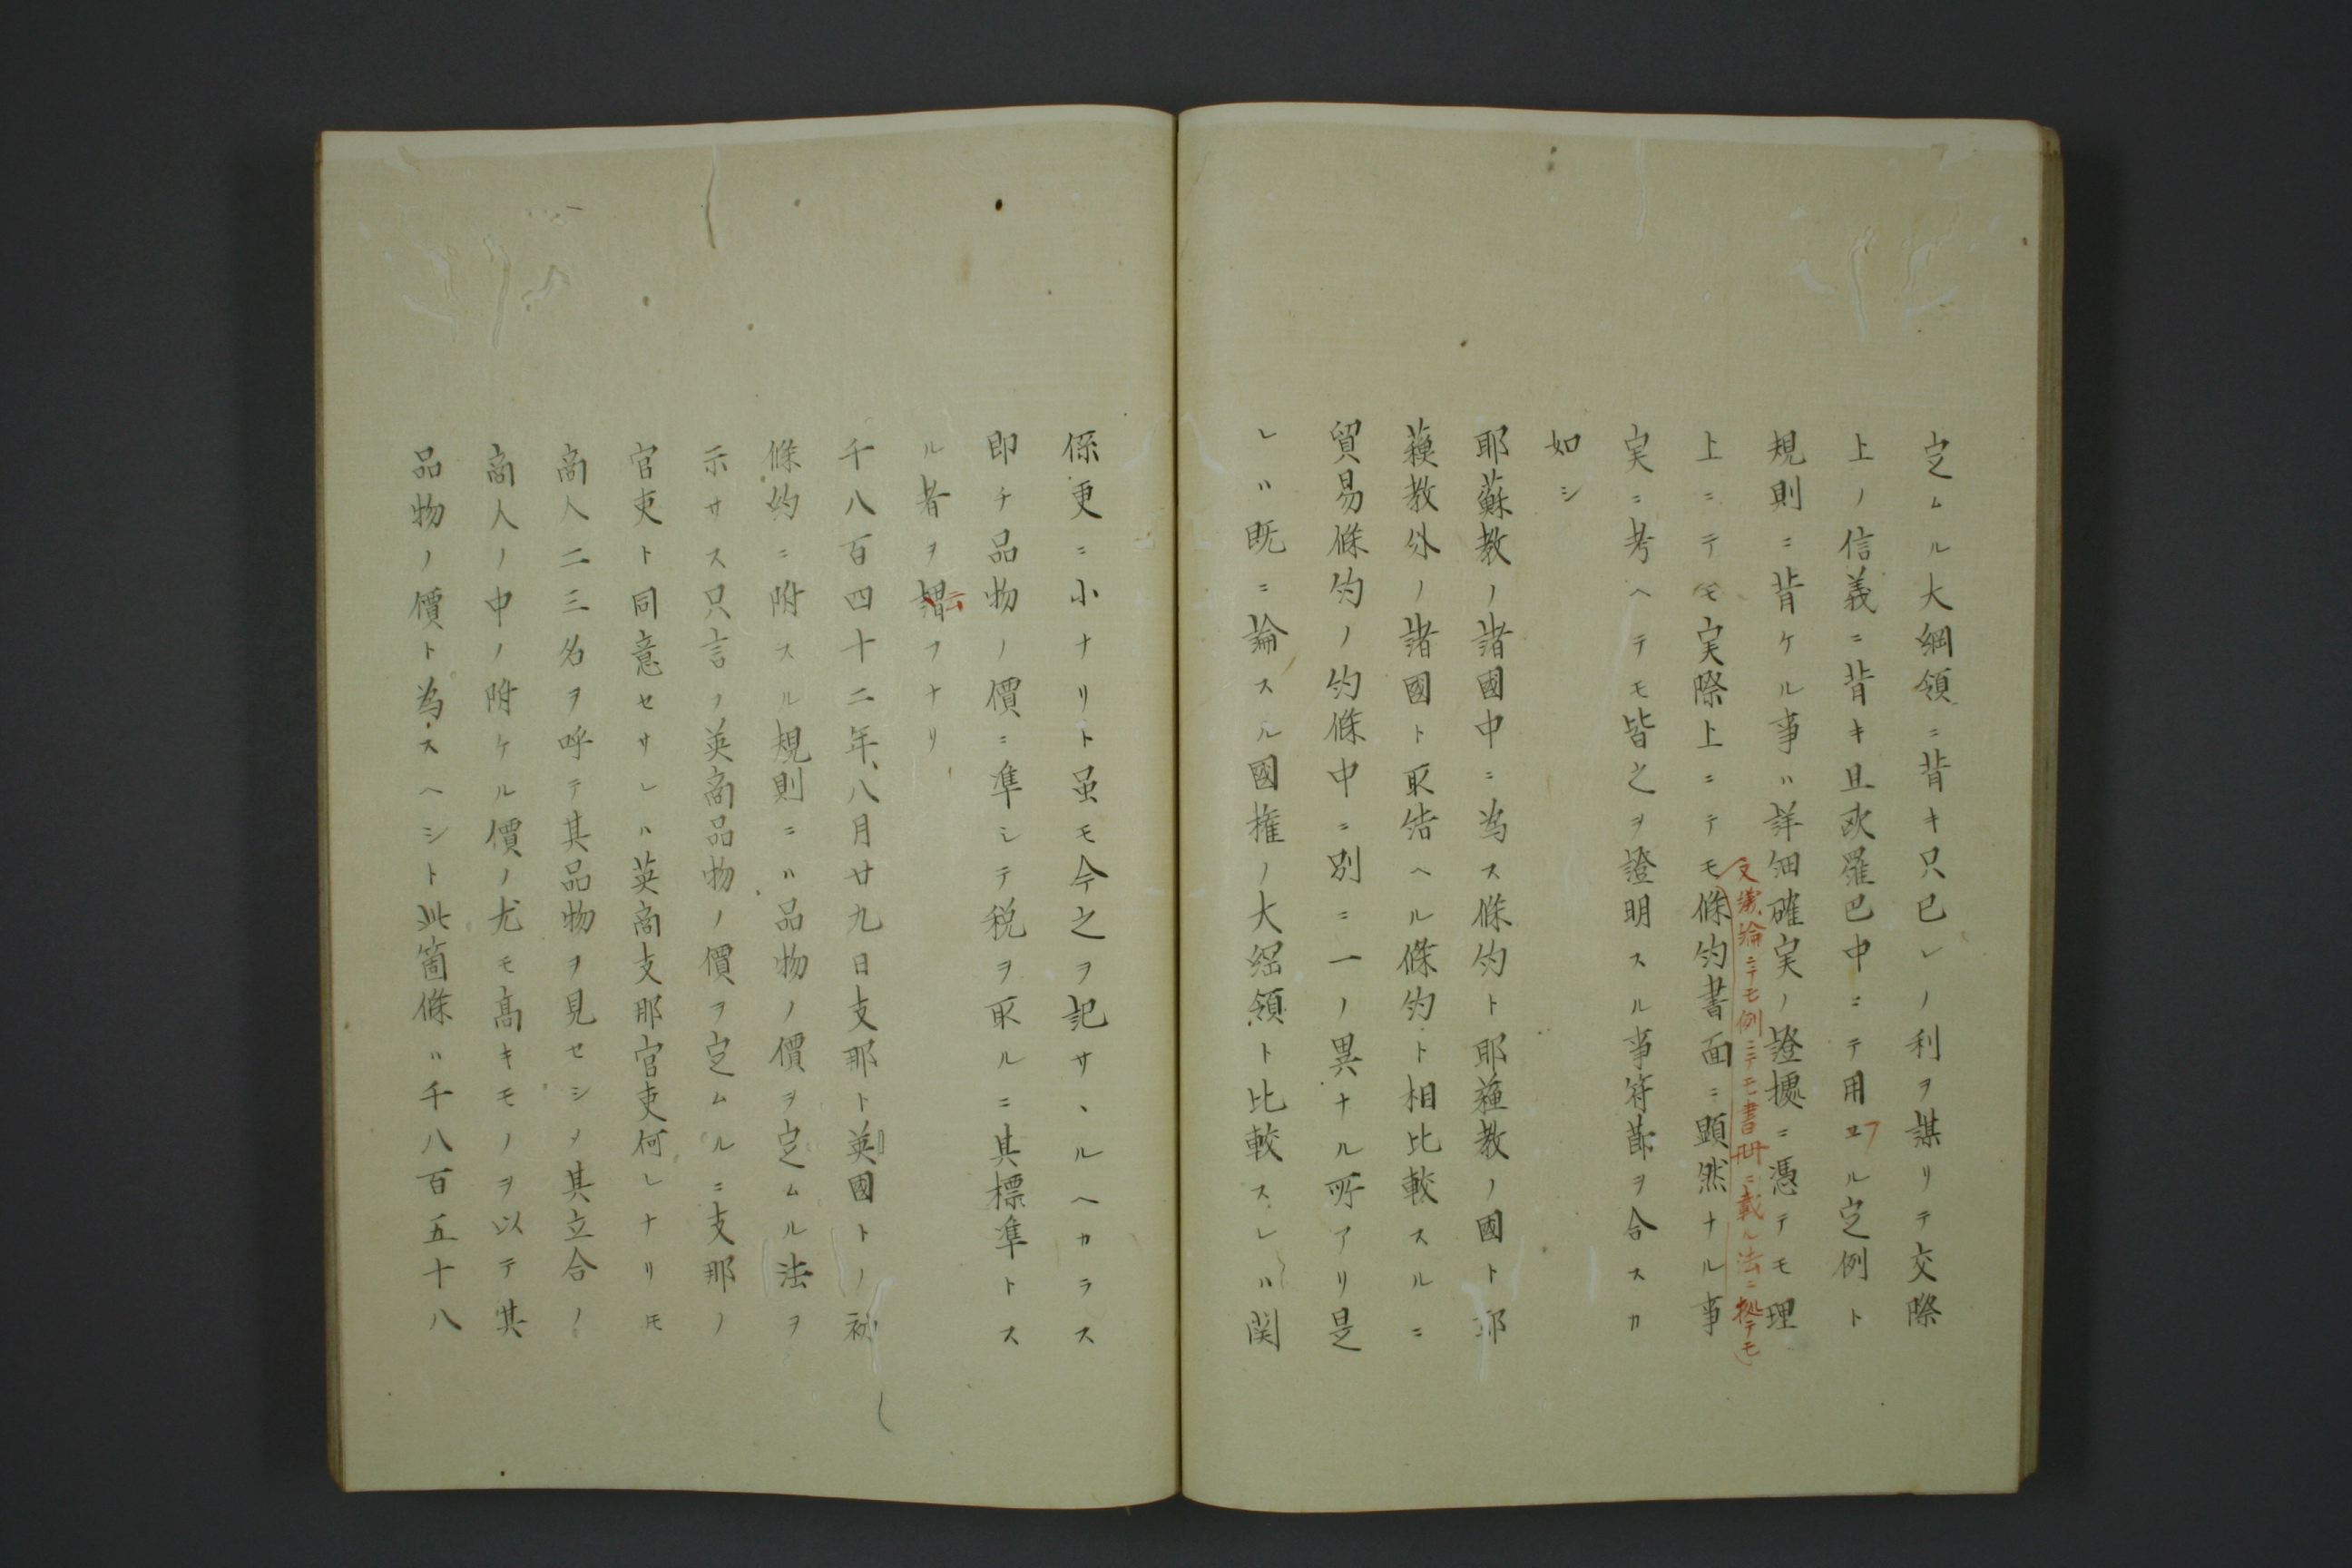 定ムル大綱領ニ背キ只已レノ利ヲ謀リテ交際
上ノ信義ニ背キ且欧羅巴中ニテ用ユル定例ト
フ
規則ニ背ケル事ハ詳細確実ノ證據ニ憑テモ理
又議論ニテモ例ニテモ書冊ニ載ル法ニ拠テモ
上ニテモ実際上ニテモ條約書面ニ顕然ナル事
実ニ考ヘテモ皆之ヲ證明スル事符節ヲ合スカ
如シ
耶蘇教ノ諸國中ニ為ス條約ト耶蘓教ノ國ト耶
蘓教外ノ諸國ト取結ヘル條約ト相比較スルニ
貿易條約ノ約條中ニ別ニ一ノ異ナル所アリ是
レハ既ニ論スル國権ノ大綱領ト比較スレハ関
係更ニ小ナリト虽モ今之ヲ記サヽルヘカラス
即チ品物ノ價ニ準シテ税ヲ取ルニ其標準トス
ル者ヲ謂フナリ
云
千八百四十二年八月廿九日支那ト英國トノ初
條約ニ附スル規則ニハ品物ノ價ヲ定ムル法ヲ
示サス只言ノ英商品物ノ價ヲ定ムルニ支那ノ
官吏ト同意セサレハ英商支那官吏何レナリトモ
商人二三名ヲ呼テ其品物ヲ見セシメ其立合ノ
商人ノ中ノ附ケル價ノ尤モ高キモノヲ以テ其
品物ノ價ト為スヘシト此箇條ハ千八百五十八